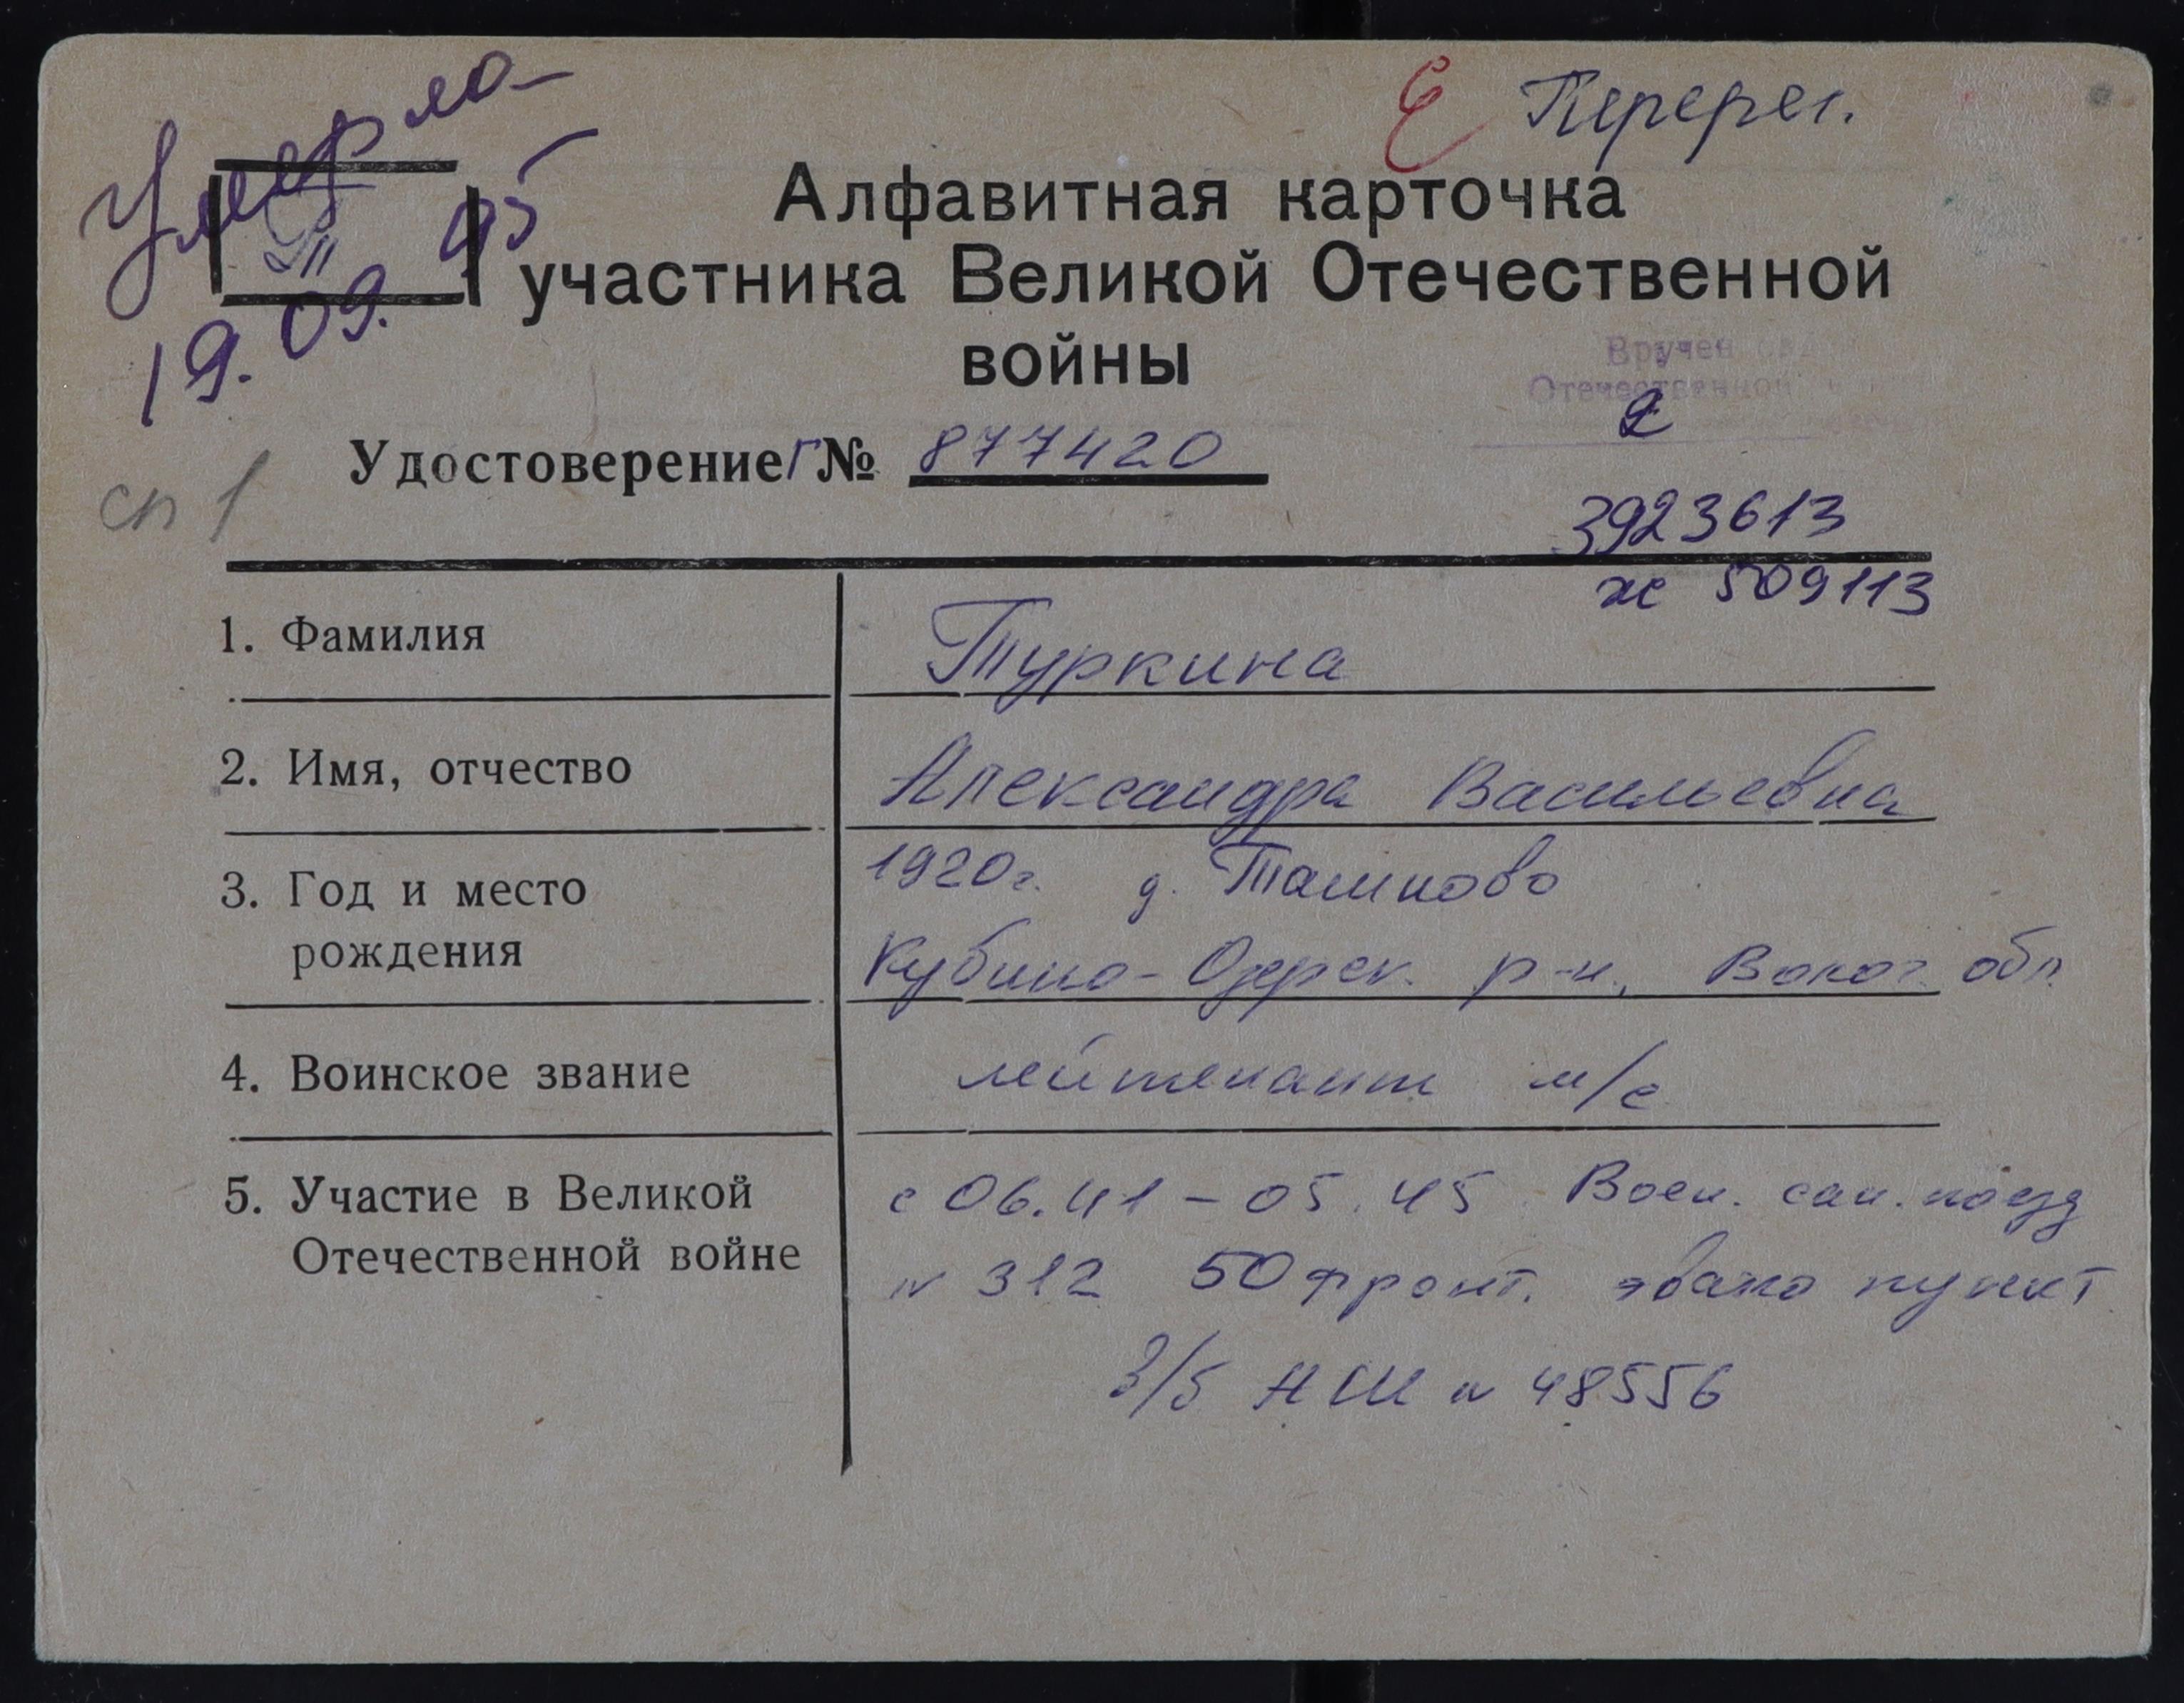 Умерла
19.09.95
Е Перерег.
Алфавитная карточка
участника Великой Отечественной
войны
Вручен
Отечественной
2
Удостоверение Г № 877420
сп 1
3923613
ж 509113
1. Фамилия Туркина
2. Имя, отчество Александра Васильевна
3. Год и место 1920г. д.
рождения Кубино-Озерск. р-н, Волог. обл.
4. Воинское звание лейтенант м/с
5. Участие в Великой с 06.41 – 05.45 Воен. сан. поезд
Отечественной войне № 312 50 фронт. эвако пункт
З/б НШ № 48556